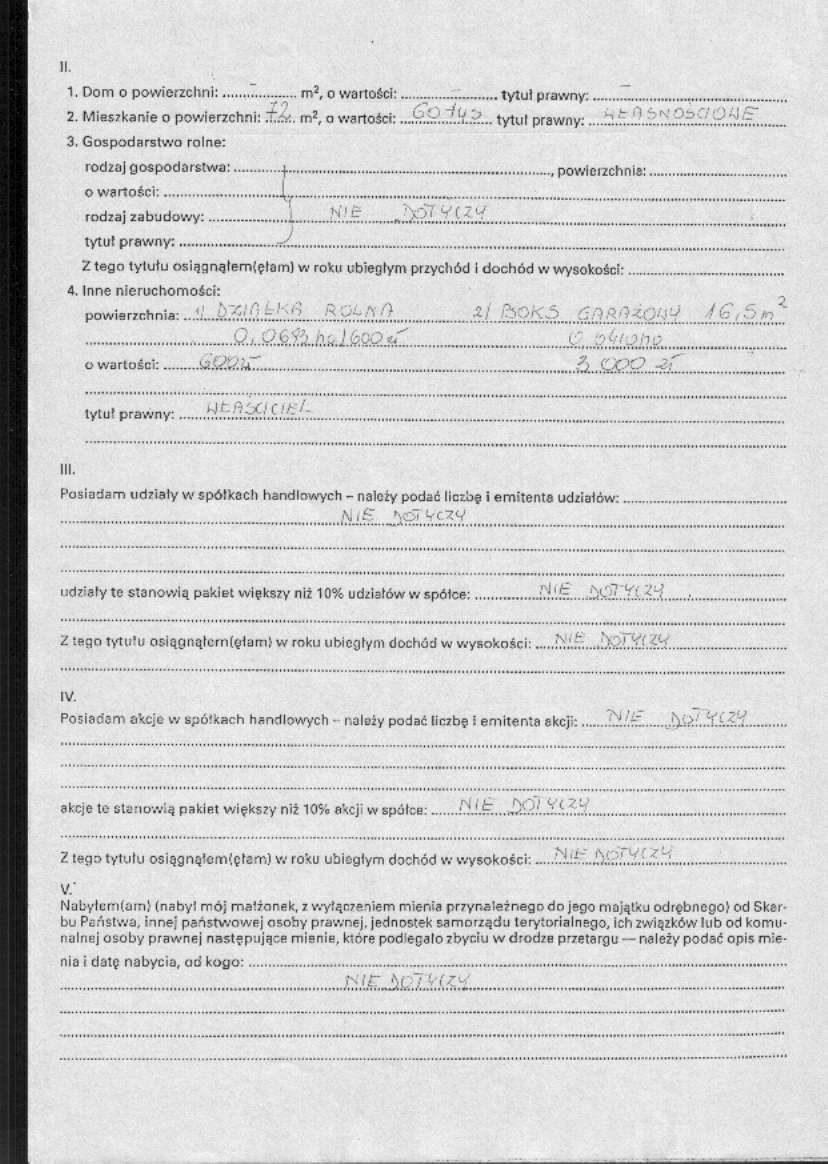 II.
1. Dom o powierzchni: ..........–........ m², o wartości: .............–............ tytuł prawny: ........–........
2. Mieszkanie o powierzchni: 72 m², o wartości: tytuł prawny: WŁASNOŚCIOWE
3. Gospodarstwo rolne:
rodzaj gospodarstwa: ........................, powierzchnia: ........................
o wartości: ........................
rodzaj zabudowy: NIE DOTYCZY
tytuł prawny: ........................
Z tego tytułu osiągnąłem(ęłam) w roku ubiegłym przychód i dochód w wysokości: ........................
4. Inne nieruchomości:
powierzchnia: 1/ DZIAŁKA ROLNA 2/ BOKS GARAŻOWY 16,5 m²
0,0693 ha/600 zł
o wartości: 600 zł 3 000 zł
tytuł prawny: WŁAŚCICIEL
III.
Posiadam udziały w spółkach handlowych – należy podać liczbę i emitenta udziałów: ........................
NIE DOTYCZY
udziały te stanowią pakiet większy niż 10% udziałów w spółce: NIE DOTYCZY
Z tego tytułu osiągnąłem(ęłam) w roku ubiegłym dochód w wysokości: NIE DOTYCZY
IV.
Posiadam akcje w spółkach handlowych – należy podać liczbę i emitenta akcji: NIE DOTYCZY
akcje te stanowią pakiet większy niż 10% akcji w spółce: NIE DOTYCZY
Z tego tytułu osiągnąłem(ęłam) w roku ubiegłym dochód w wysokości: NIE DOTYCZY
V.
Nabyłem(am) (nabył mój małżonek, z wyłączeniem mienia przynależnego do jego majątku odrębnego) od Skar-
bu Państwa, innej państwowej osoby prawnej, jednostek samorządu terytorialnego, ich związków lub od komu-
nalnej osoby prawnej następujące mienie, które podlegało zbyciu w drodze przetargu — należy podać opis mie-
nia i datę nabycia, od kogo: ........................
NIE DOTYCZY